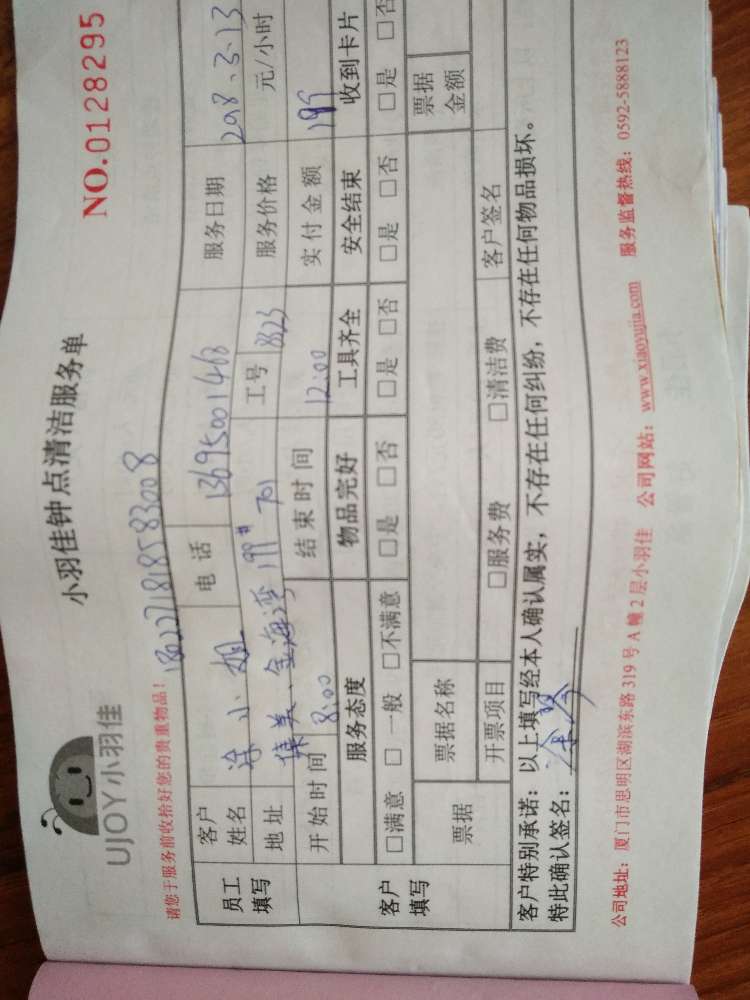 UJOY小羽佳
小羽佳钟点清洁服务单
NO.0128295
请您于服务前收拾好您的贵重物品！
员工填写
客户姓名
涂小姐
电话
13695001468
服务日期
2018.3.23
地址
集美、金海湾199# 701
工号
8823
服务价格
元/小时
开始时间
8:00
结束时间
12:00
实付金额
199
客户填写
服务态度
物品完好
工具齐全
安全结束
收到卡片
□满意 □一般 □不满意
□是 □否
□是 □否
□是 □否
□是 □否
票据
票据名称
票据金额
开票项目
□服务费 □清洁费
客户签名
客户特别承诺：以上填写经本人确认属实，不存在任何纠纷，不存在任何物品损坏。
特此确认签名：
公司地址：厦门市思明区湖滨东路319号A幢2层小羽佳 公司网站：www.xiaoyujia.com 服务监督热线：0592-5888123